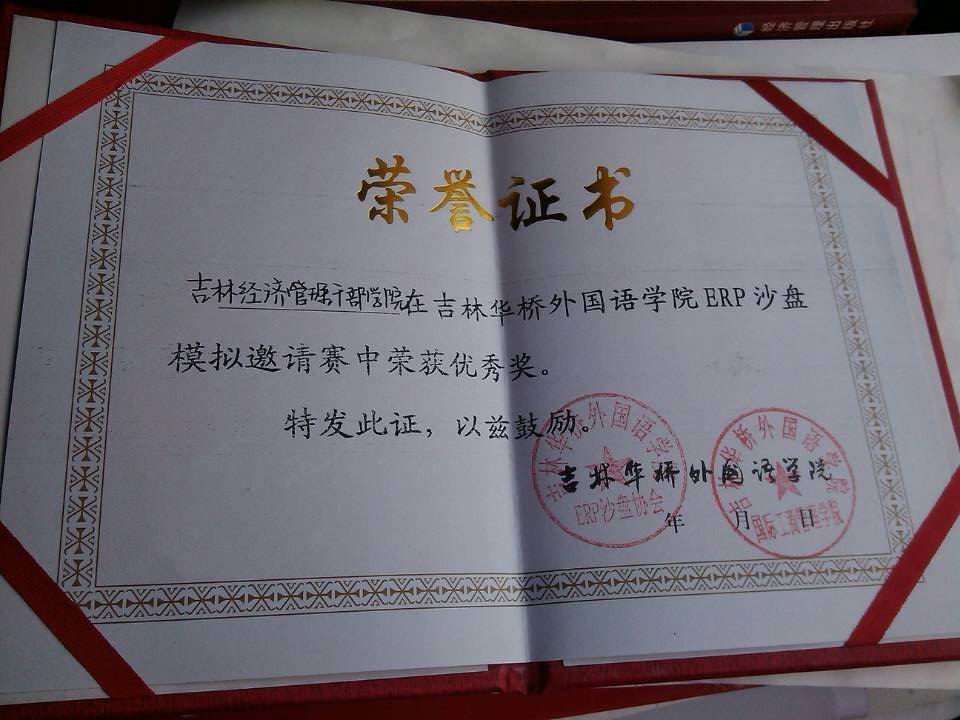 经济管理出版社
荣誉证书
吉林经济管理干部学院在吉林华桥外国语学院ERP沙盘
模拟邀请赛中荣获优秀奖。
特发此证，以兹鼓励。
吉林华桥外国语学院
ERP沙盘协会
吉林华桥外国语学院
吉林华桥外国语学院
年 月 日